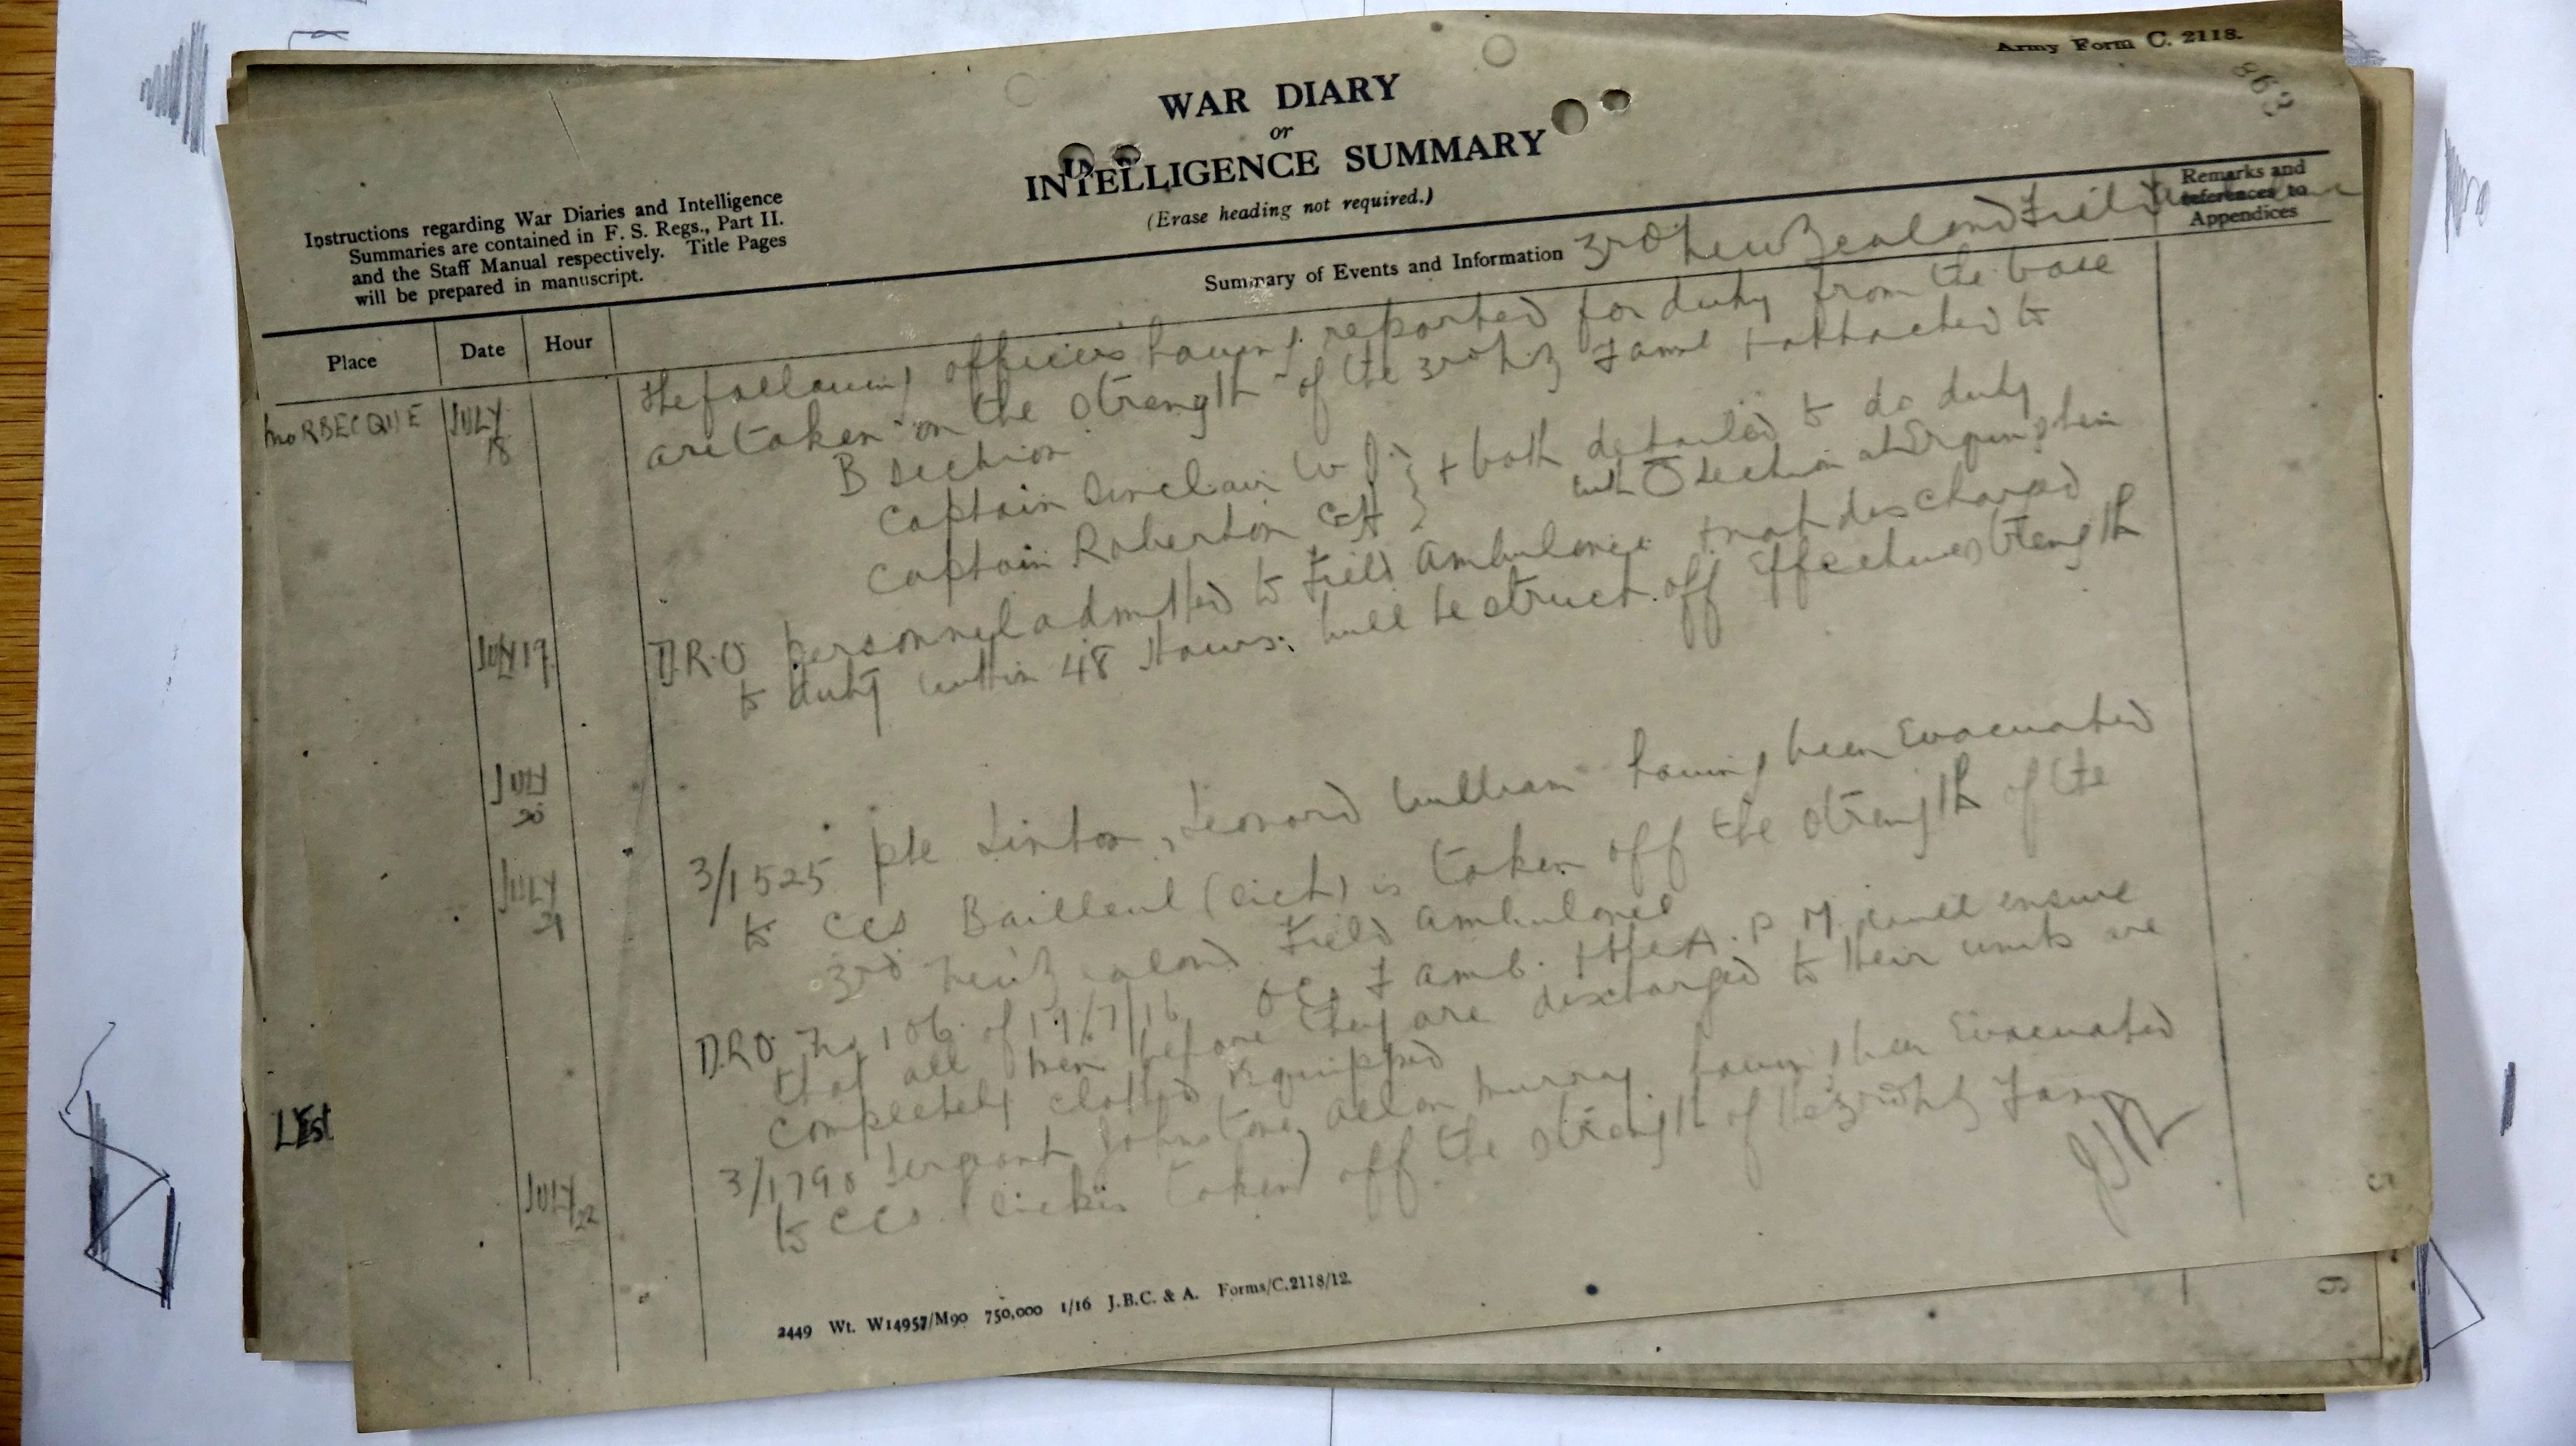 Army Form C. 2118.
863
WAR DIARY
or
INTELLIGENCE SUMMARY
(Erase heading not required.)
Instructions regarding War Diaries and Intelligence
Summaries are contained in F. S. Regs., Part II.
and the Staff Manual respectively. Title Pages
will be prepared in manuscript.
Summary of Events and Information 3rd New Zealand Field
Remarks and
references to
Appendices
Place Date Hour
MORBECQUE JULY 18 The following officers having reported for duty from the base
are taken on the strength of the 3rd NZ F amb + attached to
B section
Captain Sinclair W + both detailed to do duty
with section at Erquinghem
Captain Roberton
JULY 19 D.R.O personnel admitted to Field Ambulance + not discharged
to duty within 48 Hours. will be struck off Effective Strength
JULY 20
JULY 21 3/1525 Pte Linton, Leonard William having been Evacuated
to CCS Bailleul (sick) is taken off the strength of the
3rd New Zealand Field Ambulance
D.R.O No 106 of 19/7/16 OCs F amb. + the A. P M. will ensure
that all men before they are discharged to their units are
completely clothed + equipped
JULY 22 3/1790 Sergeant Johnstone, Allan Murray having been Evacuated
to CCS (sick is taken) off the strength of the 3rd NZ F amb
2449 Wt. W14957/M90 750,000 1/16 J.B.C. & A. Forms/C.2118/12.
6